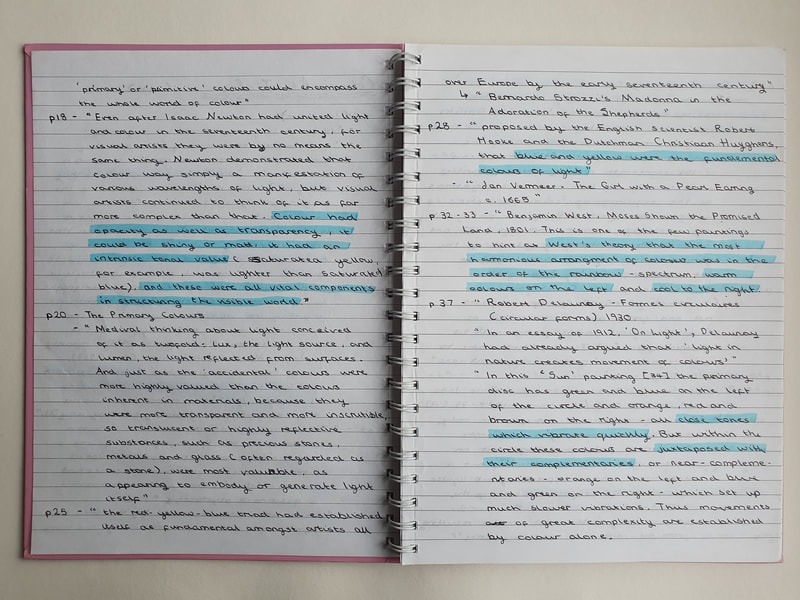 'primary' or 'primitive' colours could encompass
the whole world of colour"
p18 - "Even after Isaac Newton had united light
and colour in the seventeenth century, for
visual artists they were by no means the
same thing. Newton demonstrated that
colour way simply a manifestation of
various wavelengths of light, but visual
artists continued to think of it as far
more complex than that. Colour had
opacity as well as transparency, it
could be shiny or matt, it had an
intrinsic tonal value (saturated yellow,
for example, was lighter than saturated
blue), and these were all vital components
in structuring the visible world."
p20 - The Primary Colours
- "Medieval thinking about light conceived
of it as twofold: Lux, the light source, and
lumen, the light reflected from surfaces.
And just as the 'accidental' colours were
more highly valued than the colours
inherent in materials, because they
were more transparent and more inscrutible,
so translucent or highly reflective
substances, such as precious stones,
metals and glass (often regarded as
a stone), were most valuable, as
appearing to embody or generate light
itself"
p25 - "the red-yellow-blue triad had established
itself as fundamental amongst artists all
over Europe by the early seventeenth century"
↳ "Bernardo Strozzi's Madonna in the
Adoration of the Shepherds"
p.28 - "proposed by the English scientist Robert
Hooke and the Dutchman Christiaan Huyghens,
that blue and yellow were the fundemental
colours of light"
- "Jan Vermeer - The Girl with a Pearl Earring
c. 1665"
p.32-33 - "Benjamin West, Moses Shown the Promised
Land, 1801. This is one of the few paintings
to hint as West's theory that the most
harmonious arrangment of colours was in the
order of the rainbow - spectrum, warm
colours on the left and cool to the right.
p.37 - "Robert Delaunay - Formes circulaires
(Circular forms) 1930.
"In an essay of 1912, 'On light', Delaunay
had already argued that 'light in
nature creates movement of colours'"
"In this 'Sun' painting [34] the primary
disc has green and blue on the left
of the circle and orange, red and
brown on the right - all close tones
which vibrate quickly. But within the
circle these colours are juxtaposed with
their complementaries, or near-compleme-
ntaries - orange on the left and blue
and green on the right - which set up
much slower vibrations. Thus movements
of great complexity are established
by colour alone.